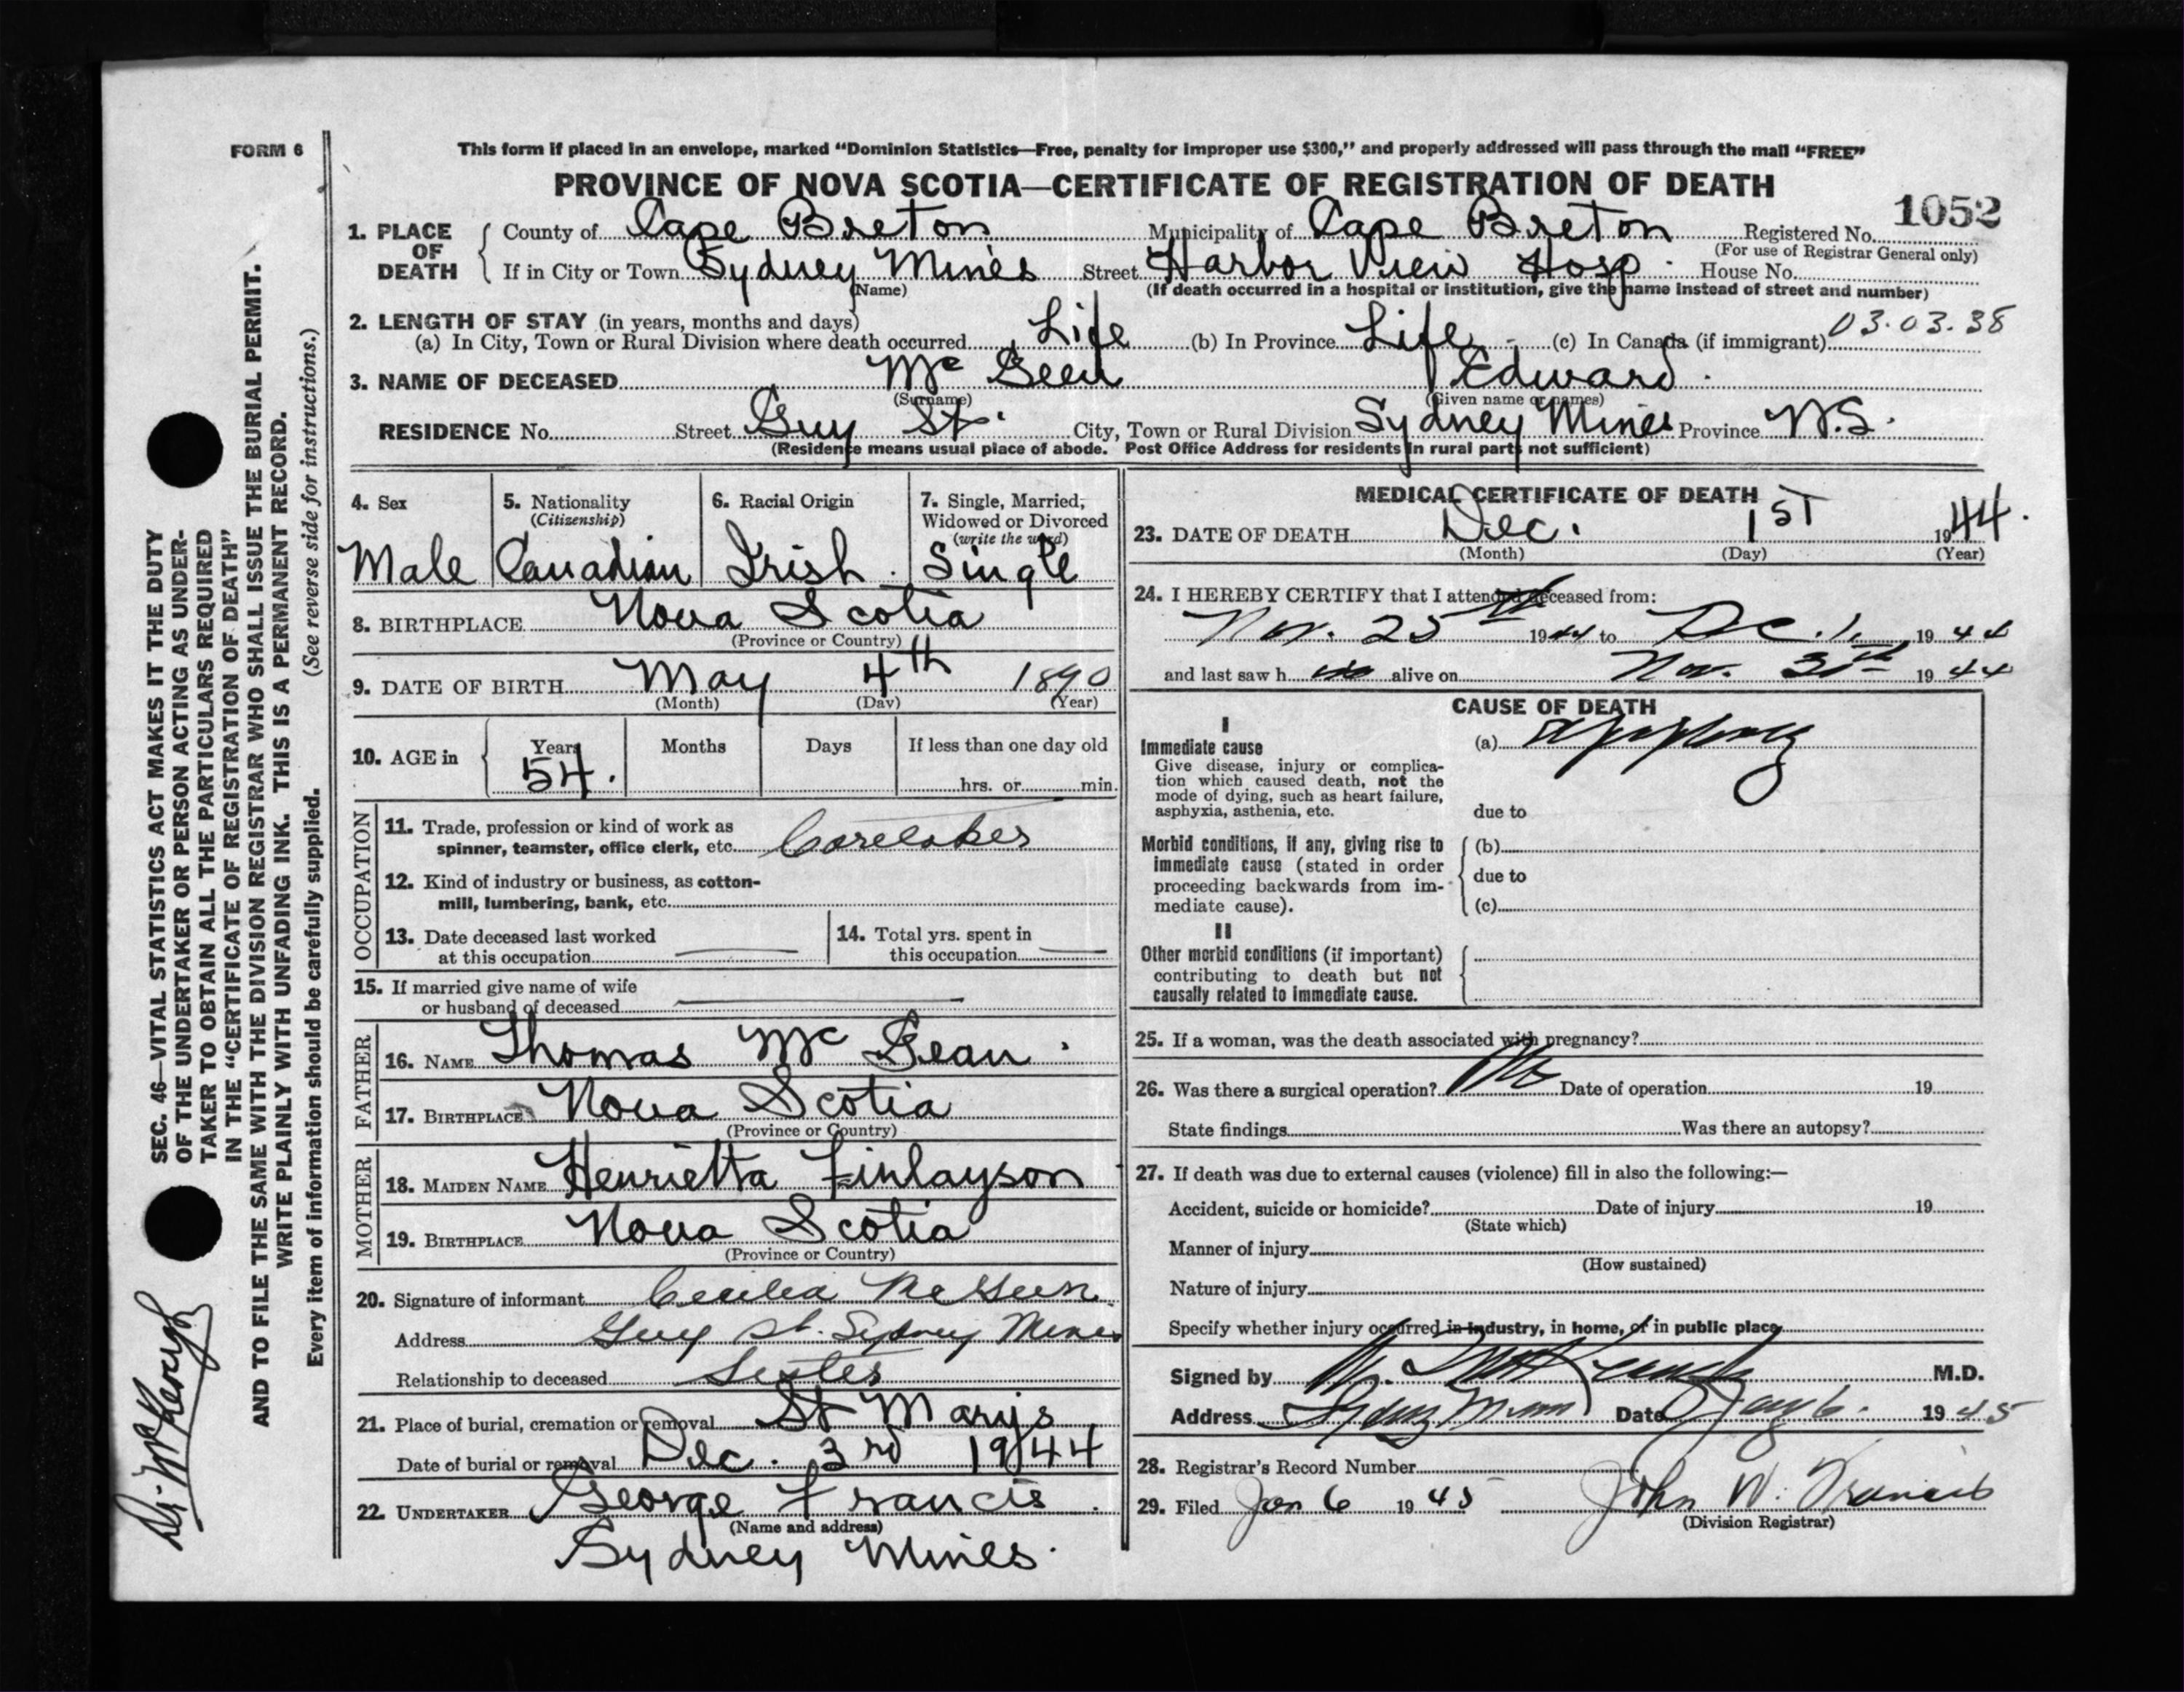 FORM 6
This form if placed in an envelope, marked “Dominion Statistics—Free, penalty for improper use $300,” and properly addressed will pass through the mail “FREE”
PROVINCE OF NOVA SCOTIA—CERTIFICATE OF REGISTRATION OF DEATH
1052
1. PLACE OF DEATH County of Cape Breton Municipality of Cape Breton Registered No.
(For use of Registrar General only)
If in City or Town Sydney Mines Street Harbor View Hosp. House No.
(Name) (If death occurred in a hospital or institution, give the name instead of street and number)
2. LENGTH OF STAY (in years, months and days)
(a) In City, Town or Rural Division where death occurred Life (b) In Province Life (c) In Canada (if immigrant) 03.03.38
3. NAME OF DECEASED Mc Geen Edward.
(Surname) (Given name or names)
RESIDENCE No. Street Guy St. City, Town or Rural Division Sydney Mines Province N.S.
(Residence means usual place of abode. Post Office Address for residents in rural parts not sufficient)
4. Sex
Male
5. Nationality
(Citizenship)
Canadian
6. Racial Origin
Irish.
7. Single, Married, Widowed or Divorced
(write the word)
Single
8. BIRTHPLACE Nova Scotia
(Province or Country)
9. DATE OF BIRTH May 4th 1890
(Month) (Day) (Year)
10. AGE in Years Months Days If less than one day old
54. hrs. or min.
OCCUPATION
11. Trade, profession or kind of work as
spinner, teamster, office clerk, etc. Caretaker
12. Kind of industry or business, as cotton-
mill, lumbering, bank, etc.
13. Date deceased last worked
at this occupation
14. Total yrs. spent in
this occupation
15. If married give name of wife
or husband of deceased
FATHER
16. NAME Thomas Mc Gean.
17. BIRTHPLACE Nova Scotia
(Province or Country)
MOTHER
18. MAIDEN NAME Henrietta Finlayson
19. BIRTHPLACE Nova Scotia
(Province or Country)
20. Signature of informant Cecilia McGeen.
Address Guy St. Sydney Mines
Relationship to deceased Sister
21. Place of burial, cremation or removal St Mary's
Date of burial or removal Dec. 3rd 1944
22. UNDERTAKER George Francis.
(Name and address)
Sydney Mines.
MEDICAL CERTIFICATE OF DEATH
23. DATE OF DEATH Dec. 1ST 1944.
(Month) (Day) (Year)
24. I HEREBY CERTIFY that I attended deceased from:
Nov. 25th 1944 to Dec. 1. 1944
and last saw h im alive on Nov. 30th 1944
CAUSE OF DEATH
I
Immediate cause
Give disease, injury or complica-
tion which caused death, not the
mode of dying, such as heart failure,
asphyxia, asthenia, etc.
(a) Apoplexy
due to
Morbid conditions, if any, giving rise to
immediate cause (stated in order
proceeding backwards from im-
mediate cause).
(b)
due to
(c)
II
Other morbid conditions (if important)
contributing to death but not
causally related to immediate cause.
25. If a woman, was the death associated with pregnancy?
26. Was there a surgical operation? No Date of operation 19
State findings Was there an autopsy?
27. If death was due to external causes (violence) fill in also the following:—
Accident, suicide or homicide? Date of injury 19
(State which)
Manner of injury
(How sustained)
Nature of injury
Specify whether injury occurred in industry, in home, or in public place
Signed by M.D.
Address Sydney Mines Date Jan 6. 1945
28. Registrar's Record Number
29. Filed Jan 6 1945 John W. Francis
(Division Registrar)
SEC. 46—VITAL STATISTICS ACT MAKES IT THE DUTY
OF THE UNDERTAKER OR PERSON ACTING AS UNDER-
TAKER TO OBTAIN ALL THE PARTICULARS REQUIRED
IN THE “CERTIFICATE OF REGISTRATION OF DEATH”
AND TO FILE THE SAME WITH THE DIVISION REGISTRAR WHO SHALL ISSUE THE BURIAL PERMIT.
WRITE PLAINLY WITH UNFADING INK. THIS IS A PERMANENT RECORD.
Every item of information should be carefully supplied. (See reverse side for instructions.)
Dr. McKeough